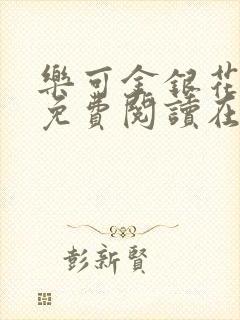 樂可金銀花
免費閱讀在
彭新賢